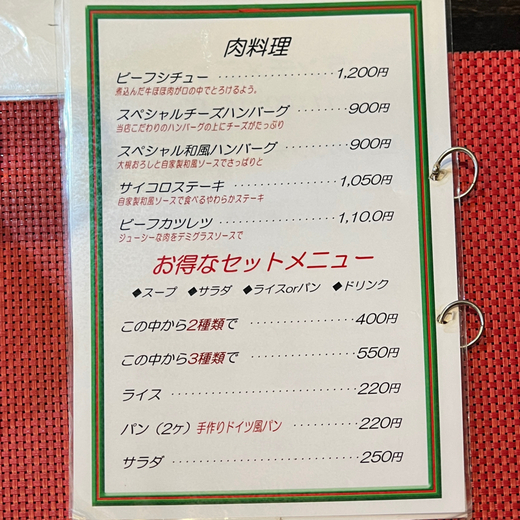 肉料理
ビーフシチュー ・・・・・・・・・・・・・・・・・・ 1,200円
煮込んだ牛ほほ肉が口の中でとろけるよう。
スペシャルチーズハンバーグ ・・・・・・・ 900円
当店こだわりのハンバーグの上にチーズがたっぷり
スペシャル和風ハンバーグ ・・・・・・・・・ 900円
大根おろしと自家製和風ソースでさっぱりと
サイコロステーキ ・・・・・・・・・・・・・・・・ 1,050円
自家製和風ソースで食べるやわらかステーキ
ビーフカツレツ ・・・・・・・・・・・・・・・・・・ 1,10,0円
ジューシーな肉をデミグラスソースで
お得なセットメニュー
◆スープ ◆サラダ ◆ライスorパン ◆ドリンク
この中から2種類で ・・・・・・・・・・・・・・ 400円
この中から3種類で ・・・・・・・・・・・・・・ 550円
ライス ・・・・・・・・・・・・・・・・・・・・・・・・・・ 220円
パン（2ケ）手作りドイツ風パン ・・・・・・・・ 220円
サラダ ・・・・・・・・・・・・・・・・・・・・・・・・・・ 250円